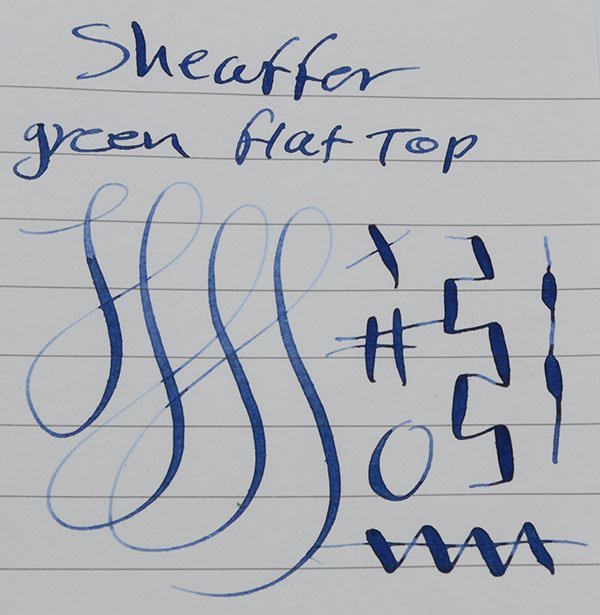 Sheaffer
green flat Top